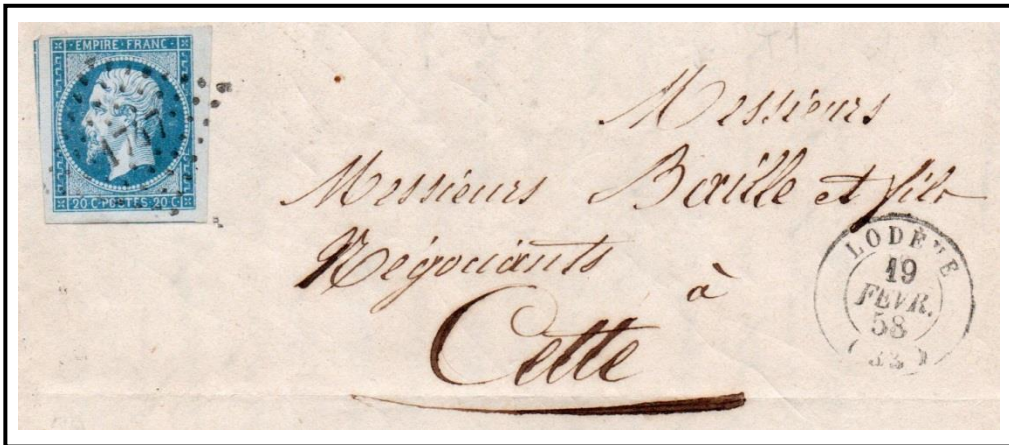 EMPIRE·FRANC·
20 C·POSTES·20 C
Messieurs
Messieurs Baille et fils
Négociants
à
Cette
LODÈVE
19
FEVR.
58